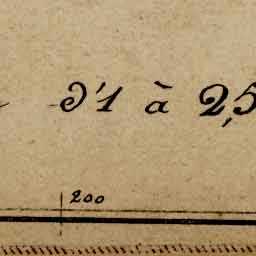 d'1 à 2,5
200